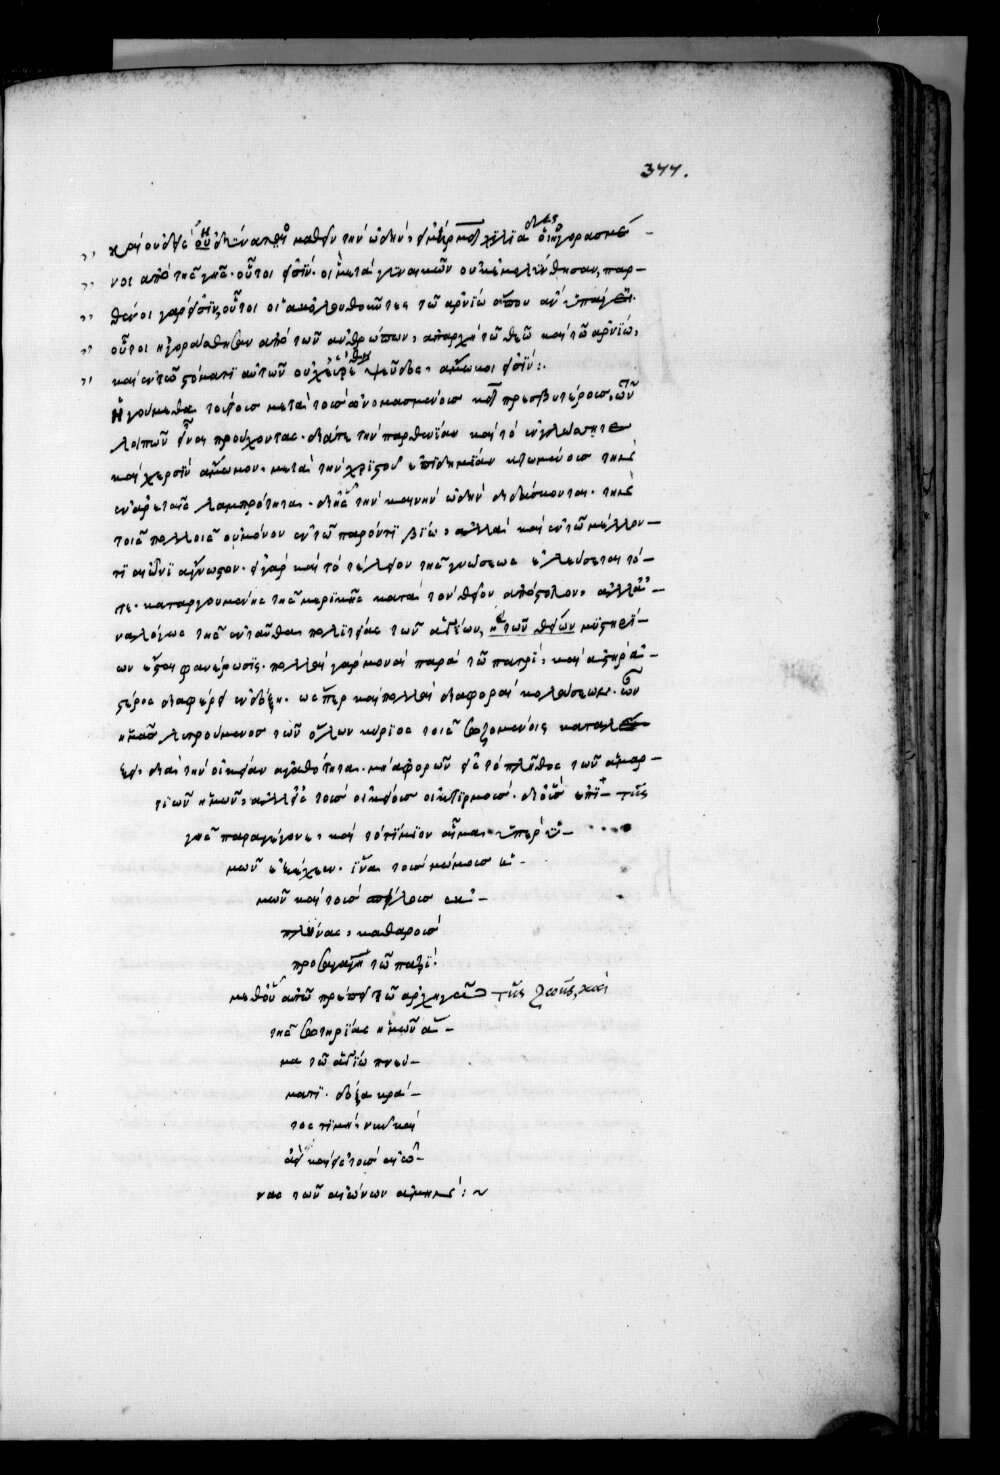 377.
καὶ οὐδεὶς ἠδύνατο μαθεῖν τὴν ὠδήν, εἰ μὴ αἱ ρμδ χιλϊάδες οἱ ἠγορασμέ-
νοι ἀπὸ τῆς γῆς. οὗτοί εἰσϊν. οἱ μετὰ γυναικῶν οὐκ ἐμολύνθησαν, παρ-
θένοι γάρ εἰσϊν, οὗτοι οἱ ἀκολουθοῦντες τῶ ἀρνίω ὅπου ἂν ὑπάγει.
οὗτοι ἠγοράσθησαν ἀπὸ τῶν ἀνθρώπων, ἀπαρχὴ τῶ θεῶ καὶ τῶ ἀρνίω,
καὶ ἐν τῶ στόματϊ αὐτῶν οὐχ εὑρέθη ψεῦδος, ἄμωμοι εἰσϊν:
Ἡγούμεθα τούτοις μετὰ τοὺς ὠνομασμένους κδ πρεσβυτέρους, τῶν
λοιπῶν εἶναι προύχοντας. διά τε τὴν παρθενίαν καὶ τὸ ἐν γλώσση τε
καὶ χερσὶν ἄμωμον, μετὰ τὴν χριστοῦ ἐπϊδημίαν κτωμένους τῆς
ἐν ἀρεταῖς λαμπρότητα. δι' ἧς τὴν καινὴν ὠδὴν διδάσκονται. τὴν
τοῖς πολλοῖς οὐ μόνον ἐν τῶ παρόντϊ βίω, ἀλλὰ καὶ ἐν τῶ μέλλον-
τϊ αἰῶνϊ ἄγνωστον. εἰ γὰρ καὶ τὸ τέλειον τῆς γνώσεως ἐλεύσεται τό-
τε. καταργουμένης τῆς μερϊκῆς κατὰ τὸν θεῖον ἀπόστολον, ἀλλ' ἀ-
ναλόγως τῆς ἐνταῦθα πολϊτείας τῶν ἁγίων, ἡ τῶν θείων μυστηρί-
ων ἔσται φανέρωσϊς. πολλαὶ γὰρ μοναὶ παρὰ τῶ πατρί, καὶ ἀστὴρ ἀ-
στέρος διαφέρει ἐν δόξη. ὥσπερ καὶ πολλαὶ διαφοραὶ κολάσεων. ὧν
ἡμᾶς λυτρούμενος τῶν ὅλων κύρϊος τοῖς σωζομένοις
διὰ τὴν οἰκείαν ἀγαθότητα. μὴ ἀφορῶν εἰς τὸ πλῆθος τῶν ἁμαρ-
τϊῶν ἡμῶν, ἀλλ' εἰς τοὺς οἰκείους οἰκτϊρμούς. δι' οὓς ἐπϊ τῆς
γῆς παραγέγονε, καὶ τὸ τίμϊον αἷμα ὑπὲρ ἡ-
μῶν ἐξέχεεν. ἵνα τοὺς μώμους ἡ-
μῶν καὶ τοὺς σπίλους ἐκ-
πλύνας, καθαροὺς
προσαγάγη τῶ πατρϊ.
μεθ' οὗ αὐτῶ πρέπει τῶ ἀρχηγῶ τῆς ζωῆς, καὶ
τῆς σωτηρίας ἡμῶν ἅ-
μα τῶ ἁγίω πνεύ-
ματϊ. δόξα κρά-
τος τϊμή, νῦν καὶ
ἀεὶ καὶ εἰς τοὺς αἰῶ-
νας τῶν αἰώνων ἀμήν:~